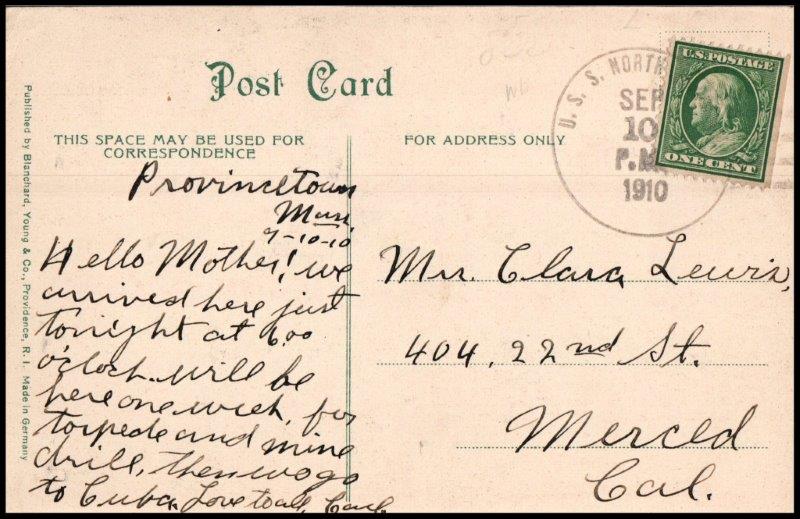 Post Card
THIS SPACE MAY BE USED FOR
CORRESPONDENCE
FOR ADDRESS ONLY
Published by Blanchard, Young & Co., Providence, R. I. Made in Germany
U. S. S. NORTH
SEP
10
P.M.
1910
U.S. POSTAGE
ONE CENT
Provincetown
Mass
9-10-10
Hello Mother! we
arrived here just
tonight at 6.00
o'clock. will be
here one week, for
torpedo and mine
drill, then we go
to Cuba. Love to all, Carl.
Mrs. Clara Lewis,
404, 22nd St.
Merced
Cal.